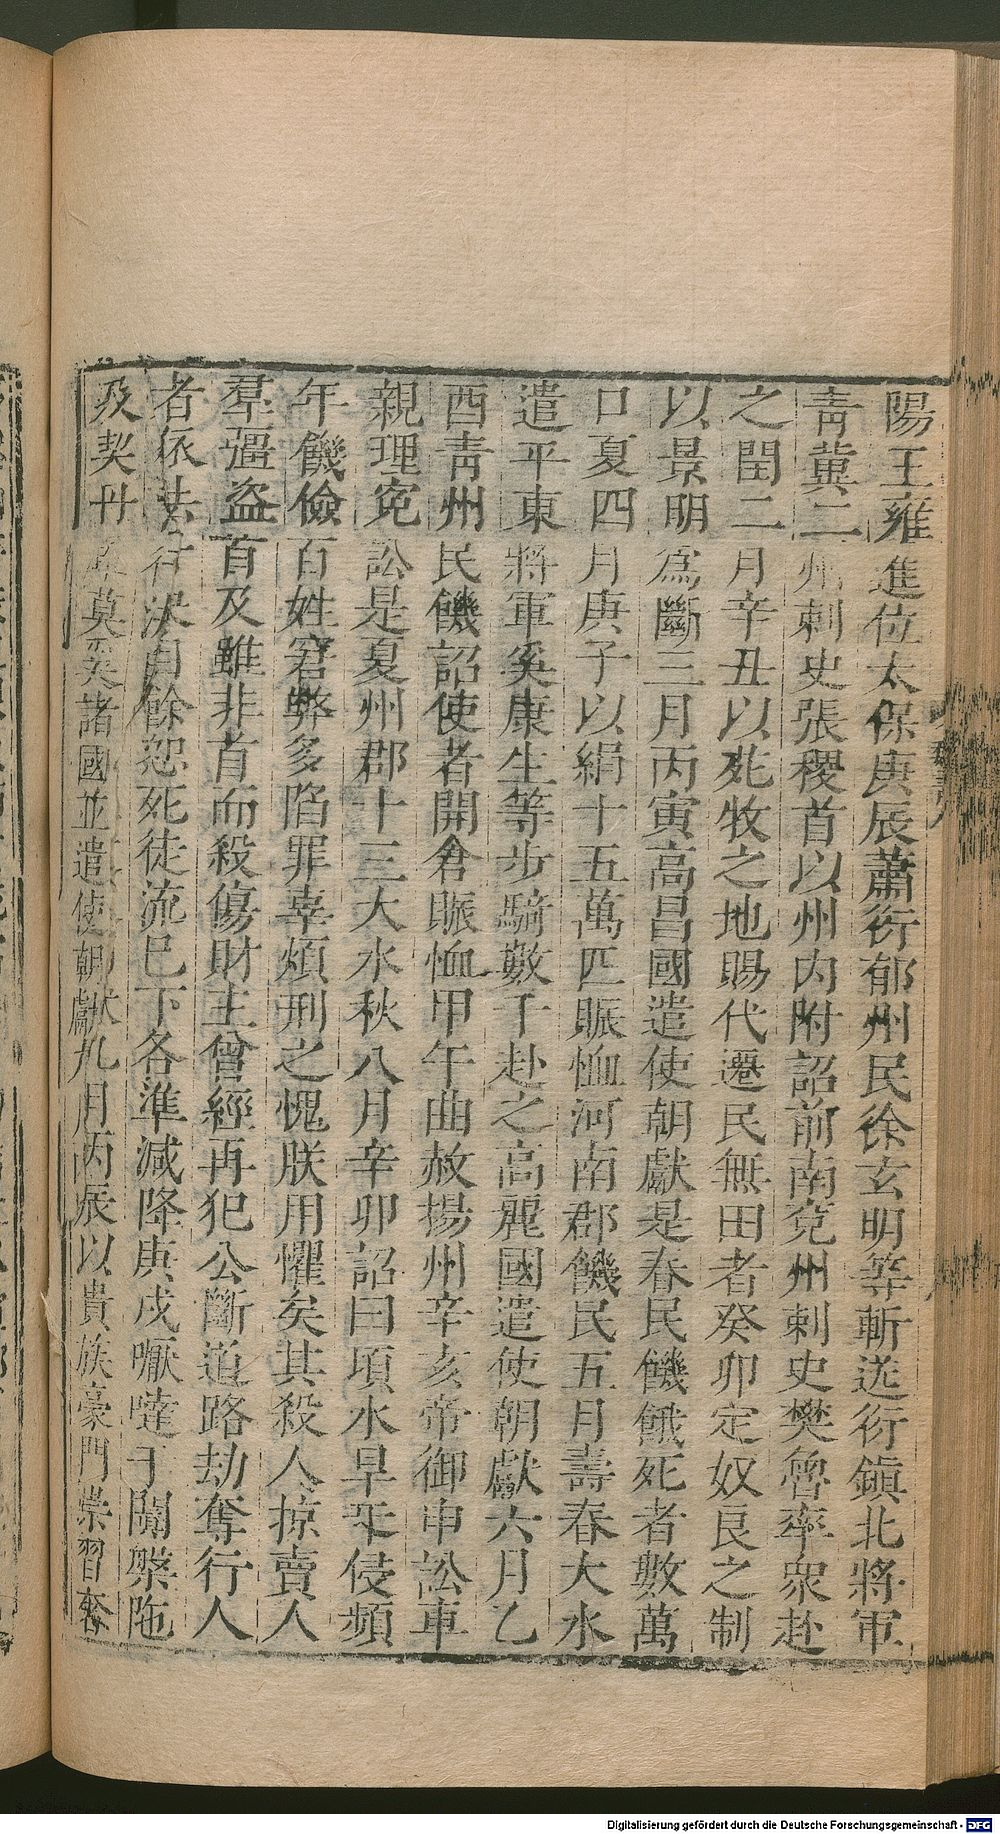 陽王雍進位太保庚辰蕭衍郁州民徐玄明等斬送衍鎮北將軍
青冀二州刺史張稷首以州內附詔前南兗州刺史樊魯率衆赴
之閏二月辛丑以死牧之地賜代遷民無田者癸卯定奴良之制
以景明爲斷三月丙寅高昌國遣使朝獻是春民饑餓死者數萬
口夏四月庚子以絹十五萬匹賑恤河南郡饑民五月壽春大水
遣平東將軍奚康生等步騎數千赴之高麗國遣使朝獻六月乙
酉青州民饑詔使者開倉賑恤甲午曲赦揚州辛亥帝御申訟車
親理寃訟是夏州郡十三大水秋八月辛卯詔曰頃水旱互侵頻
年饑儉百姓窘弊多陷罪辜煩刑之愧朕用懼矣其殺人掠賣人
羣彊盜首及雖非首而殺傷財主曾經再犯公斷道路劫奪行人
者依法行決自餘恕死徒流已下各準減降庚戌嚈噠于闐槃陁
及契丹庫莫奚諸國並遣使朝獻九月丙辰以貴族豪門崇習奢
魏書八
Digitalisierung gefördert durch die Deutsche Forschungsgemeinschaft - DFG